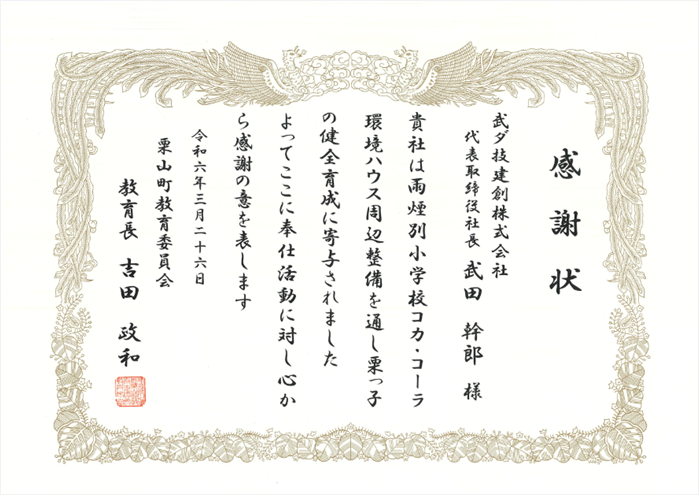 感謝状
武ダ技建創株式会社
代表取締役社長 武田 幹郎 様
貴社は雨煙別小学校コカ・コーラ
環境ハウス周辺整備を通し栗っ子
の健全育成に寄与されました
よってここに奉仕活動に対し心か
ら感謝の意を表します
令和六年三月二十六日
栗山町教育委員会
教育長 吉田 政和